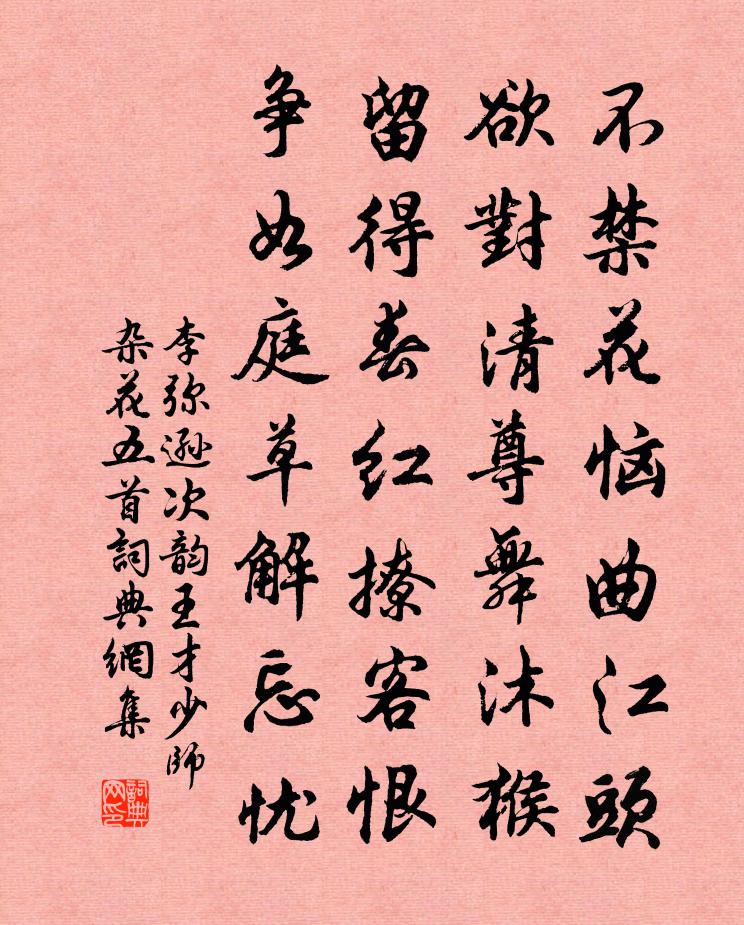 不禁花恼曲江頭
欲對清尊舞沐猴
留得春红撩客恨
争如庭草解忘忧
李弥逊次韵王才少師
杂花五首詞典網集
詞典網印